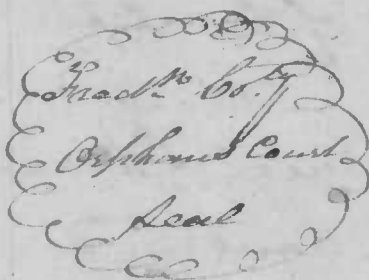 Fredk Coty
Orphans Court
Seal